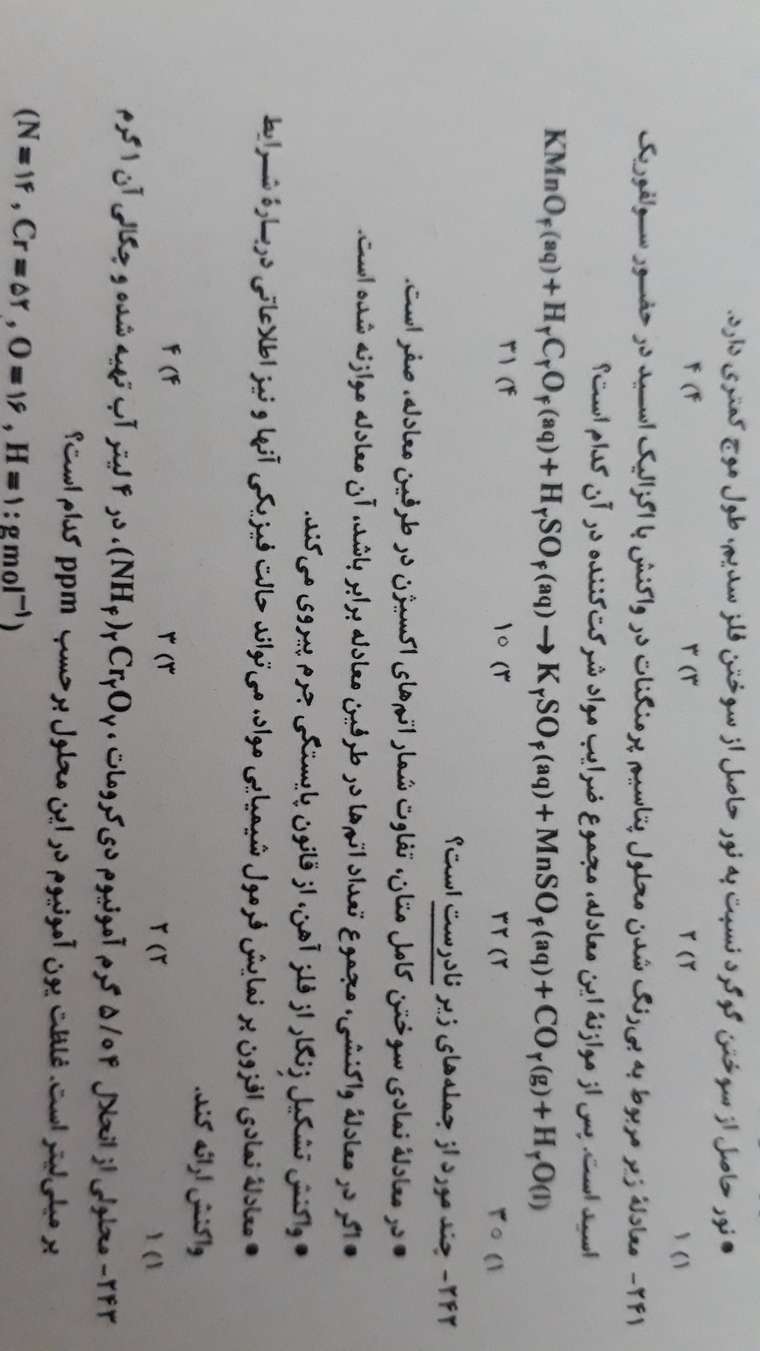 • نور حاصل از سوختن گوگرد نسبت به نور حاصل از سوختن فلز سدیم، طول موج کمتری دارد.
۱) ۱ ۲) ۲ ۳) ۳ ۴) ۴
۲۴۱- معادلهٔ زیر مربوط به بی‌رنگ شدن محلول پتاسیم پرمنگنات در واکنش با اگزالیک اسید در حضور سولفوریک
اسید است. پس از موازنهٔ این معادله، مجموع ضرایب مواد شرکت‌کننده در آن کدام است؟
KMnO₄(aq) + H₂C₂O₄(aq) + H₂SO₄(aq) → K₂SO₄(aq) + MnSO₄(aq) + CO₂(g) + H₂O(l)
۱) ۳۰ ۲) ۳۲ ۳) ۱۰ ۴) ۳۱
۲۴۲- چند مورد از جمله‌های زیر نادرست است؟
• در معادلهٔ نمادی سوختن کامل متان، تفاوت شمار اتم‌های اکسیژن در طرفین معادله، صفر است.
• اگر در معادلهٔ واکنشی، مجموع تعداد اتم‌ها در طرفین معادله برابر باشد، آن معادله موازنه شده است.
• واکنش تشکیل زنگار از فلز آهن، از قانون پایستگی جرم پیروی می‌کند.
• معادلهٔ نمادی افزون بر نمایش فرمول شیمیایی مواد، می‌تواند حالت فیزیکی آنها و نیز اطلاعاتی دربارهٔ شرایط
واکنش ارائه کند.
۱) ۱ ۲) ۲ ۳) ۳ ۴) ۴
۲۴۳- محلولی از انحلال ۵/۰۴ گرم آمونیوم دی‌کرومات، (NH₄)₂Cr₂O₇، در ۴ لیتر آب تهیه شده و چگالی آن ۱ گرم
بر میلی‌لیتر است. غلظت یون آمونیوم در این محلول برحسب ppm کدام است؟
(N = ۱۴ , Cr = ۵۲ , O = ۱۶ , H = ۱ : g mol⁻¹)